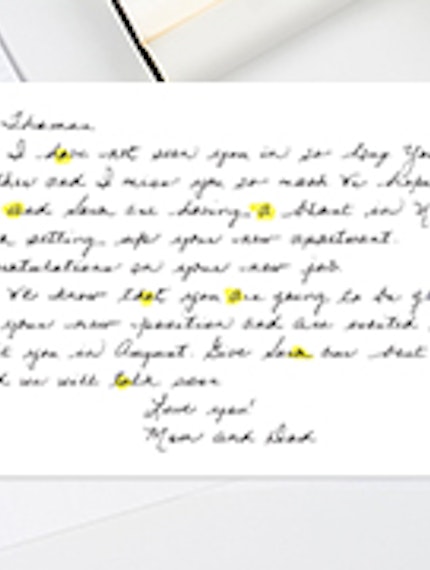 Thomas
I have not seen you in so long Yo
ther and I miss you so much We hope
and Sara are having a blast in N
setting up your new apartment.
ratulations on your new job.
We know that you are going to be g
your new position and are excited
you in August. Give Sara our best
d we will talk soon
Love you!
Mom and Dad